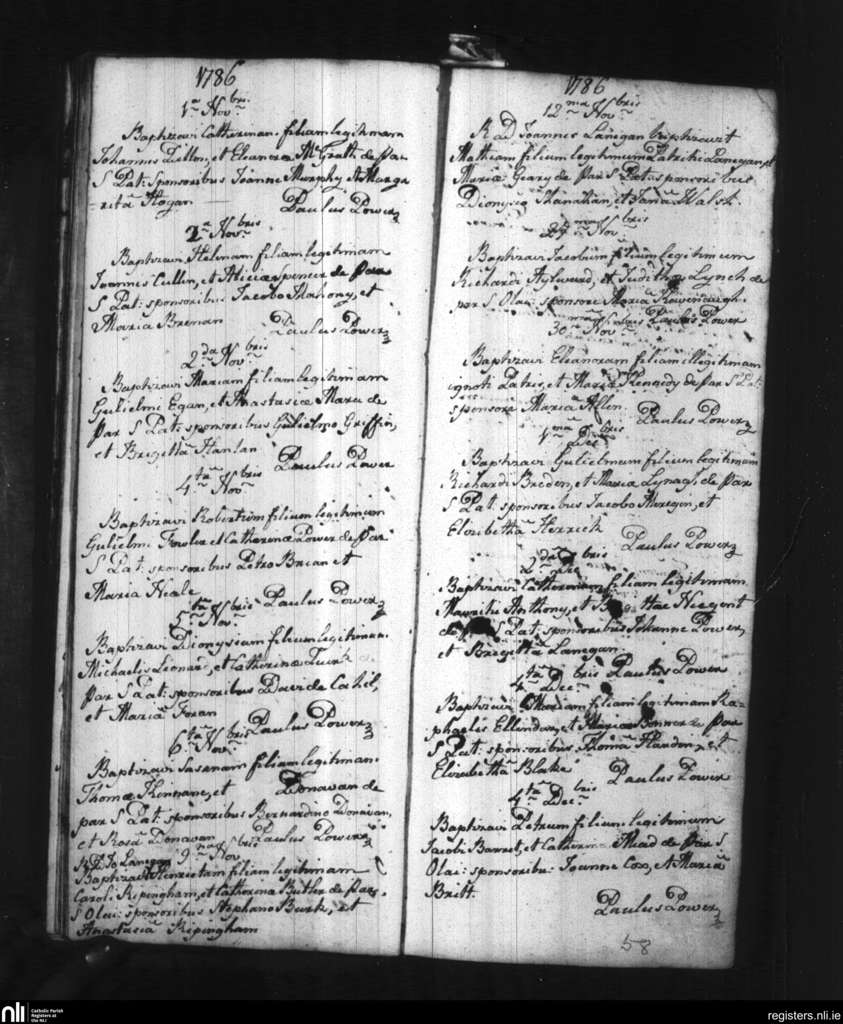 1786
1a Novbris
Baptizavi Catherinam filiam legitimam
Johannis Dillon, et Eleanora McGrath de par
S Pat: Sponsoribus Joanne Murphy et Marga
rita Hogan Paulus Power
2a Novbris
Baptizavi Helenam filiam legitimam
Joannis Cullen, et Alicia Spencer de Par
S Pat: sponsoribus Jacobo Mahony, et
Maria Brenan Paulus Power
2da Novbris
Baptizavi Mariam filiam legitimam
Gulielmi Egan, et Anastasia Mara de
Par S Pat: sponsoribus Gulielmo Griffin,
et Brigetta Hanlan Paulus Power
4ta Novbris
Baptizavi Robertum filium legitimum
Gulielmi Fowler et Catherina Power de Par
S Pat: sponsoribus Petro Brian et
Maria Neale
Paulus Power
5ta Novbris
Baptizavi Dionysium filium legitimum
Michaelis Leonard, et Catherina
Par S Pat: sponsoribus Davide Cahil,
et Maria Foran
Paulus Power
6ta Novbris
Baptizavi Susanam filiam legitimam
Thoma Kinnane, et Donavan de
par S Pat: sponsoribus Bernardino Donavan,
et Rosa Donavan Paulus Power
R D Jo Lanegan 9na Novbris
Baptizavit Henrietam filiam legitimam
Caroli Ripingham, et Catherina Butler de Par
S Olai: sponsoribus Stephano Burk, et
Anastasia Ripingham
1786
12ma Novbris
R a D Joannes Lanegan baptizavit
Mathiam filium legitimum Patritii Lanegan, et
Maria Geary de Par S Pat: sponsoribus
Dionysio Shanahan, et Jana Walsh
Novbris
Baptizavi Jacobum filium legitimum
Richardi Aylward, et Juditha Lynch de
par S Olai: sponsore Maria
Paulus Power
30 Novbris
Baptizavi Eleanoram filiam illegitimam
ignoti Patris, et Maria Kennedy de Par S Pat:
sponsore Maria Allen Paulus Power
1ma Decbris
Baptizavi Gulielmum filium legitimum
Richardi Breden, et Maria Lynagh de Par
S Pat sponsoribus Jacobo et
Elizibetha Herrick
Paulus Power
2da Decbris
Baptizavi Catherinam filiam legitimam
Mauritii Anthony, et Nugent
de S Pat: sponsoribus Johanne Power,
et Brigetta Lanegan
Paulus Power
4ta Decbris
Baptizavi Mariam filiam legitimam Ra-
phaelis Ellindon, et Maria de Par
S Pat: sponsoribus Thoma et
Elizibetha Blake
Paulus Power
4ta Decbris
Baptizavi Petrum filium legitimum
Jacobi Barnet, et Catherina Mead de Par S
Olai: sponsoribus Joanne Cox, et Maria
Britt
Paulus Power
58
nli
Catholic Parish
Registers at
the NLI
registers.nli.ie